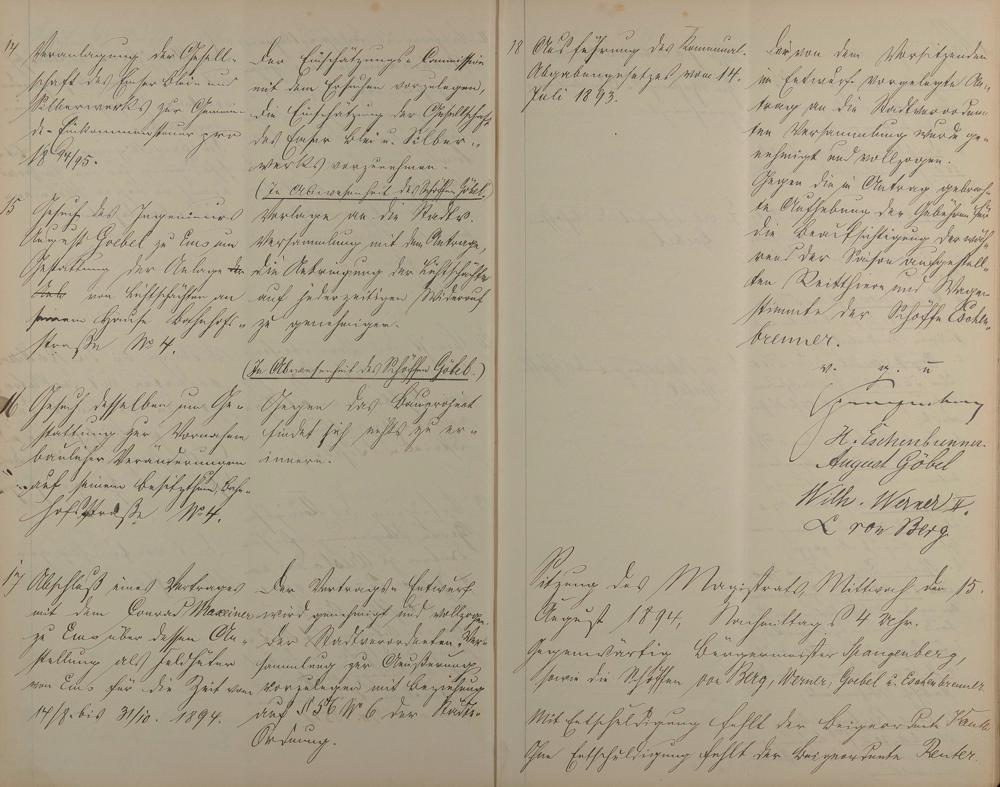 14
Veranlagung der Gesell-
schaft des Emser Blei- und
Silberwerks zur Gemein-
de-Einkommensteuer pro
1894/95.
Der Einschätzungs-Commission
mit dem Ersuchen vorzulegen,
die Einschätzung der Gesellschaft
des Emser Blei u. Silber-
werks vorzunehmen.
(In Abwesenheit des Schöffen Göbel.)
15
Gesuch des Ingenieurs
August Goebel zu Ems um
Gestattung der Anlage
von Luftschächten an
seinem Hause Bahnhof-
straße No 4.
Vorlage an die Stadtv.
Versammlung mit dem Antrage,
die Anbringung der Luftschächte
auf jederzeitigen Widerruf
zu genehmigen.
(In Abwesenheit des Schöffen Göbel.)
16
Gesuch desselben um Ge-
stattung zur Vornahme
baulicher Veränderungen
auf seinem Besitzthum, Bahn-
hofstraße No 4.
Gegen das Bauproject
findet sich nichts zu er-
innern.
17
Abschluß eines Vertrages
mit dem Conrad Maxeiner
zu Ems über dessen An-
stellung als Feldhüter
von Ems für die Zeit vom
14/8. bis 31/10. 1894.
Der Vertrags-Entwurf
wird genehmigt und vollzogen.
Der Stadtverordneten-Ver-
sammlung zur Aeußerung
vorzulegen mit Beziehung
auf § 56 No 6 der Städte-
Ordnung.
18
Ausführung des Kommunal-
Abgabengesetzes vom 14.
Juli 1893.
Der von dem Vorsitzenden
im Entwurfe vorgelegte An-
trag an die Stadtverordne-
ten Versammlung wurde ge-
nehmigt und vollzogen.
Gegen die im Antrag gebrach-
te Aufhebung der Gebühren für
die Beaufsichtigung der wäh-
rend der Saison aufgestell-
ten Reitthiere und Wagen
stimmte der Schöffe Eschen-
brenner.
v. g. u
Spangenberg
H. Eschenbrenner.
August Göbel
Wilh. Werner II.
L von Berg
Sitzung des Magistrats, Mittwoch den 15.
August 1894, Nachmittags 4 Uhr.
Gegenwärtig Bürgermeister Spangenberg,
sowie die Schöffen von Berg, Werner, Goebel u. Eschenbrenner.
Mit Entschuldigung fehlt der Beigeordnete
Ohne Entschuldigung fehlt der Beigeordnete Reuter.